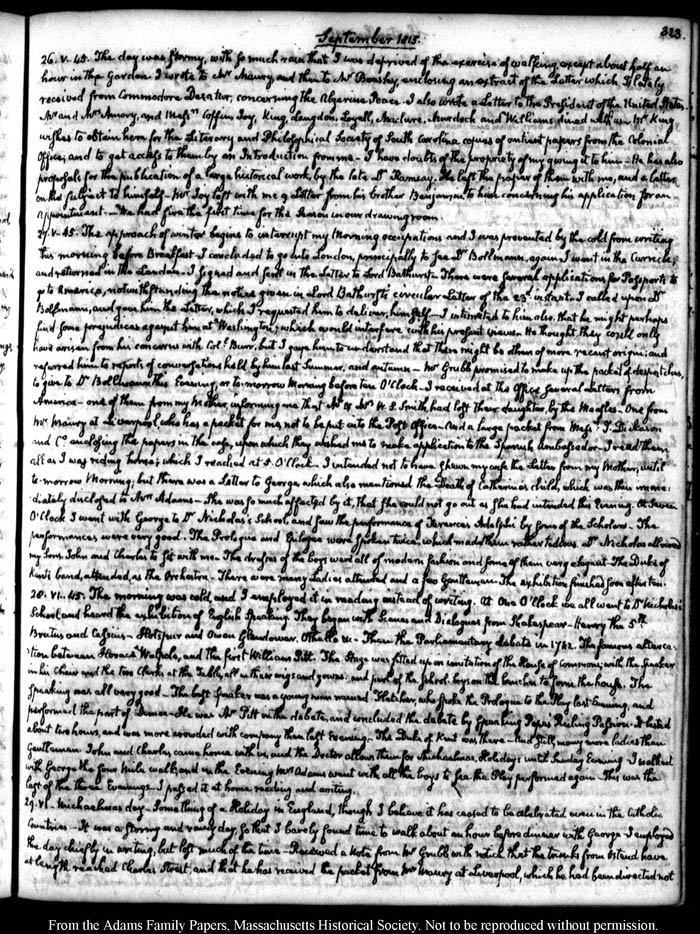 323.
September 1815.
26. V. 45. The day was stormy, with so much rain that I was deprived of the exercise of walking, except about half an
hour in the Garden. I wrote to Mr Maury, and then to Mr Beasley, enclosing an extract of the Letter which I lately
received from Commodore Decatur, concerning the Algerine Peace. I also wrote a Letter to the President of the United States
Mr and Mrs Amory, and Messrs Coffin, Joy, King, Langdon, Loyall, Maclure, Murdock and Williams dined with us. Mr King
wishes to obtain here for the Literary and Philosophical Society of South Carolina copies of antient papers from the Colonial
Office, and to get access to them by an Introduction from me — I have doubts of the propriety of my giving it to him — He has also
proposals for the publication of a large historical work, by the late Dr Ramsay. He left the papers of them with me, and a letter
on the subject to himself — Mr Joy left with me a Letter from his brother Benjamin to him concerning his application for an
appointment — We had fire the first time for this Season in our drawing room.
27. V. 45. The approach of winter begins to intercept my Morning occupations and I was prevented by the cold from writing
this morning before Breakfast. I concluded to go into London, principally to see Dr Bollmann, again I went in the Curricle,
and returned in the Landau. I signed and sent in the Letter to Lord Bathurst. There were several applications for Passports to
go to America, notwithstanding the notice given in Lord Bathurst's circular Letter of the 23d instant. I called upon Dr
Bollmann, and gave him the Letter, which I requested him to deliver, himself — I intimated to him also that he might perhaps
find some prejudices against him at Washington, which would interfere with his present views. He thought they could only
have arisen from his concerns with Coll Burr, but I gave him to understand that there might be others of more recent origin; and
referred him to reports of conversations held by him last Summer, and autumn — Mr Grubb promised to make up the packet of despatches,
to give to Dr Bollmann this Evening, or to-morrow Morning before ten O'Clock — I received at the Office several Letters from
America — one of them from my Mother, informing me that Mr & Mrs W. S. Smith had lost their daughter, by the Measles. One from
Mr Maury at Liverpool, who has a packet for me, not to be put into the Post Office — And a large packet from Messrs J. Dickason
and Co. enclosing the papers in the case, upon which they wished me to make application to the Spanish Ambassador — I read them
all as I was riding home; which I reached at 5. O'Clock — I intended not to have shewn my wife the Letter from my Mother, until
to-morrow Morning; but there was a Letter to George, which also mentioned the Death of Catherine's child, which was thus imme-
diately disclosed to Mrs Adams — She was so much affected by it, that she could not go out as she had intended this Evening. At Seven
O'Clock I went with George to Dr Nicholas's School, and saw the performance of Terence's Adelphi by some of the Scholars — The
performances were very good. The Prologue and Epilogue were spoken twice, which made them rather tedious. Dr Nicholas allowed
my Sons John and Charles to sit with me. The dresses of the boys were all of modern fashion and some of them very elegant — The Duke of
Kent's band, attended, as the Orchestra — There were many Ladies attended and a few Gentlemen — The exhibition finished soon after ten.
28. VI. 45. The morning was cold, and I employed it in reading instead of writing. At One O'Clock we all went to Dr Nicholas's
School and heard the exhibition of English Speaking. They began with Scenes and Dialogues from Shakespear — Henry the 5th
Brutus and Cassius — Hotspur and Owen Glendower. Othello &c — Then the Parliamentary debate in 1742. The famous alterca-
tion between Horace Walpole, and the first William Pitt. The Stage was fitted up in imitation of the House of Commons; with the Speaker
in his Chair and the two Clerks at the Table, all in their wigs and gowns; and part of the School boys on the benches to form the house. The
speaking was all very good — The best speaker was a young man named Fletcher, who spoke the Prologue to the Play last Evening, and
performed the part of Demea — He was Mr Pitt in the debate, and concluded the debate by speaking Pope's Ruling Passion — It lasted
about two hours, and was more crowded with company than last Evening — The Duke of Kent was there — And still many more ladies than
Gentlemen. John and Charles came home with us, and the Doctor allows them for Michaelmas, Holidays until Sunday Evening — I walked
with George the four mile walk, and in the Evening Mrs Adams went with all the boys to see the Play performed again — This was the
last of the three Evenings — I passed it at home reading and writing.
29. VI. Michaelmas day — Something of a Holiday in England, though I believe it has ceased to be celebrated even in the Catholic
Countries — It was a stormy and rainy day, so that I barely found time to walk about an hour before dinner with George — I employed
the day chiefly in writing, but lost much of the time — Received a Note from Mr Grubb with notice that the trunks from Ostend have
at length reached Charles Street, and that he has received the packet from Mr Maury at Liverpool, which he had been directed not
From the Adams Family Papers, Massachusetts Historical Society. Not to be reproduced without permission.